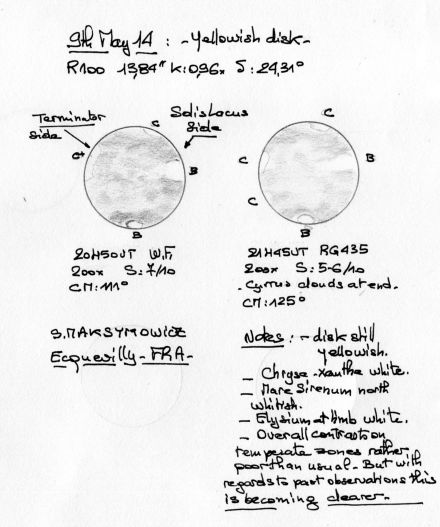 9th May 14 : - Yellowish disk -
R100 13,84" K:0,96x S : 24,31°
Terminator side
Solis Lacus side
C
C+
B
B
C
C
C
B
B
20H50UT W.F
200x S: 7/10
CM: 111°
21H45UT RG435
200x S: 5-6/10
- Cyrrus clouds at end.
CM: 125°
S. MAKSYMOWICZ
Ecquevilly - FRA -
Notes : - disk still
yellowish.
- Chryse - Xanthe white.
- Mare Sirenum north
whitish.
- Elysium at limb white.
- Overall contrast on
temperate zones rather
poor than usual - But with
regards to past observations this
is becoming clearer -